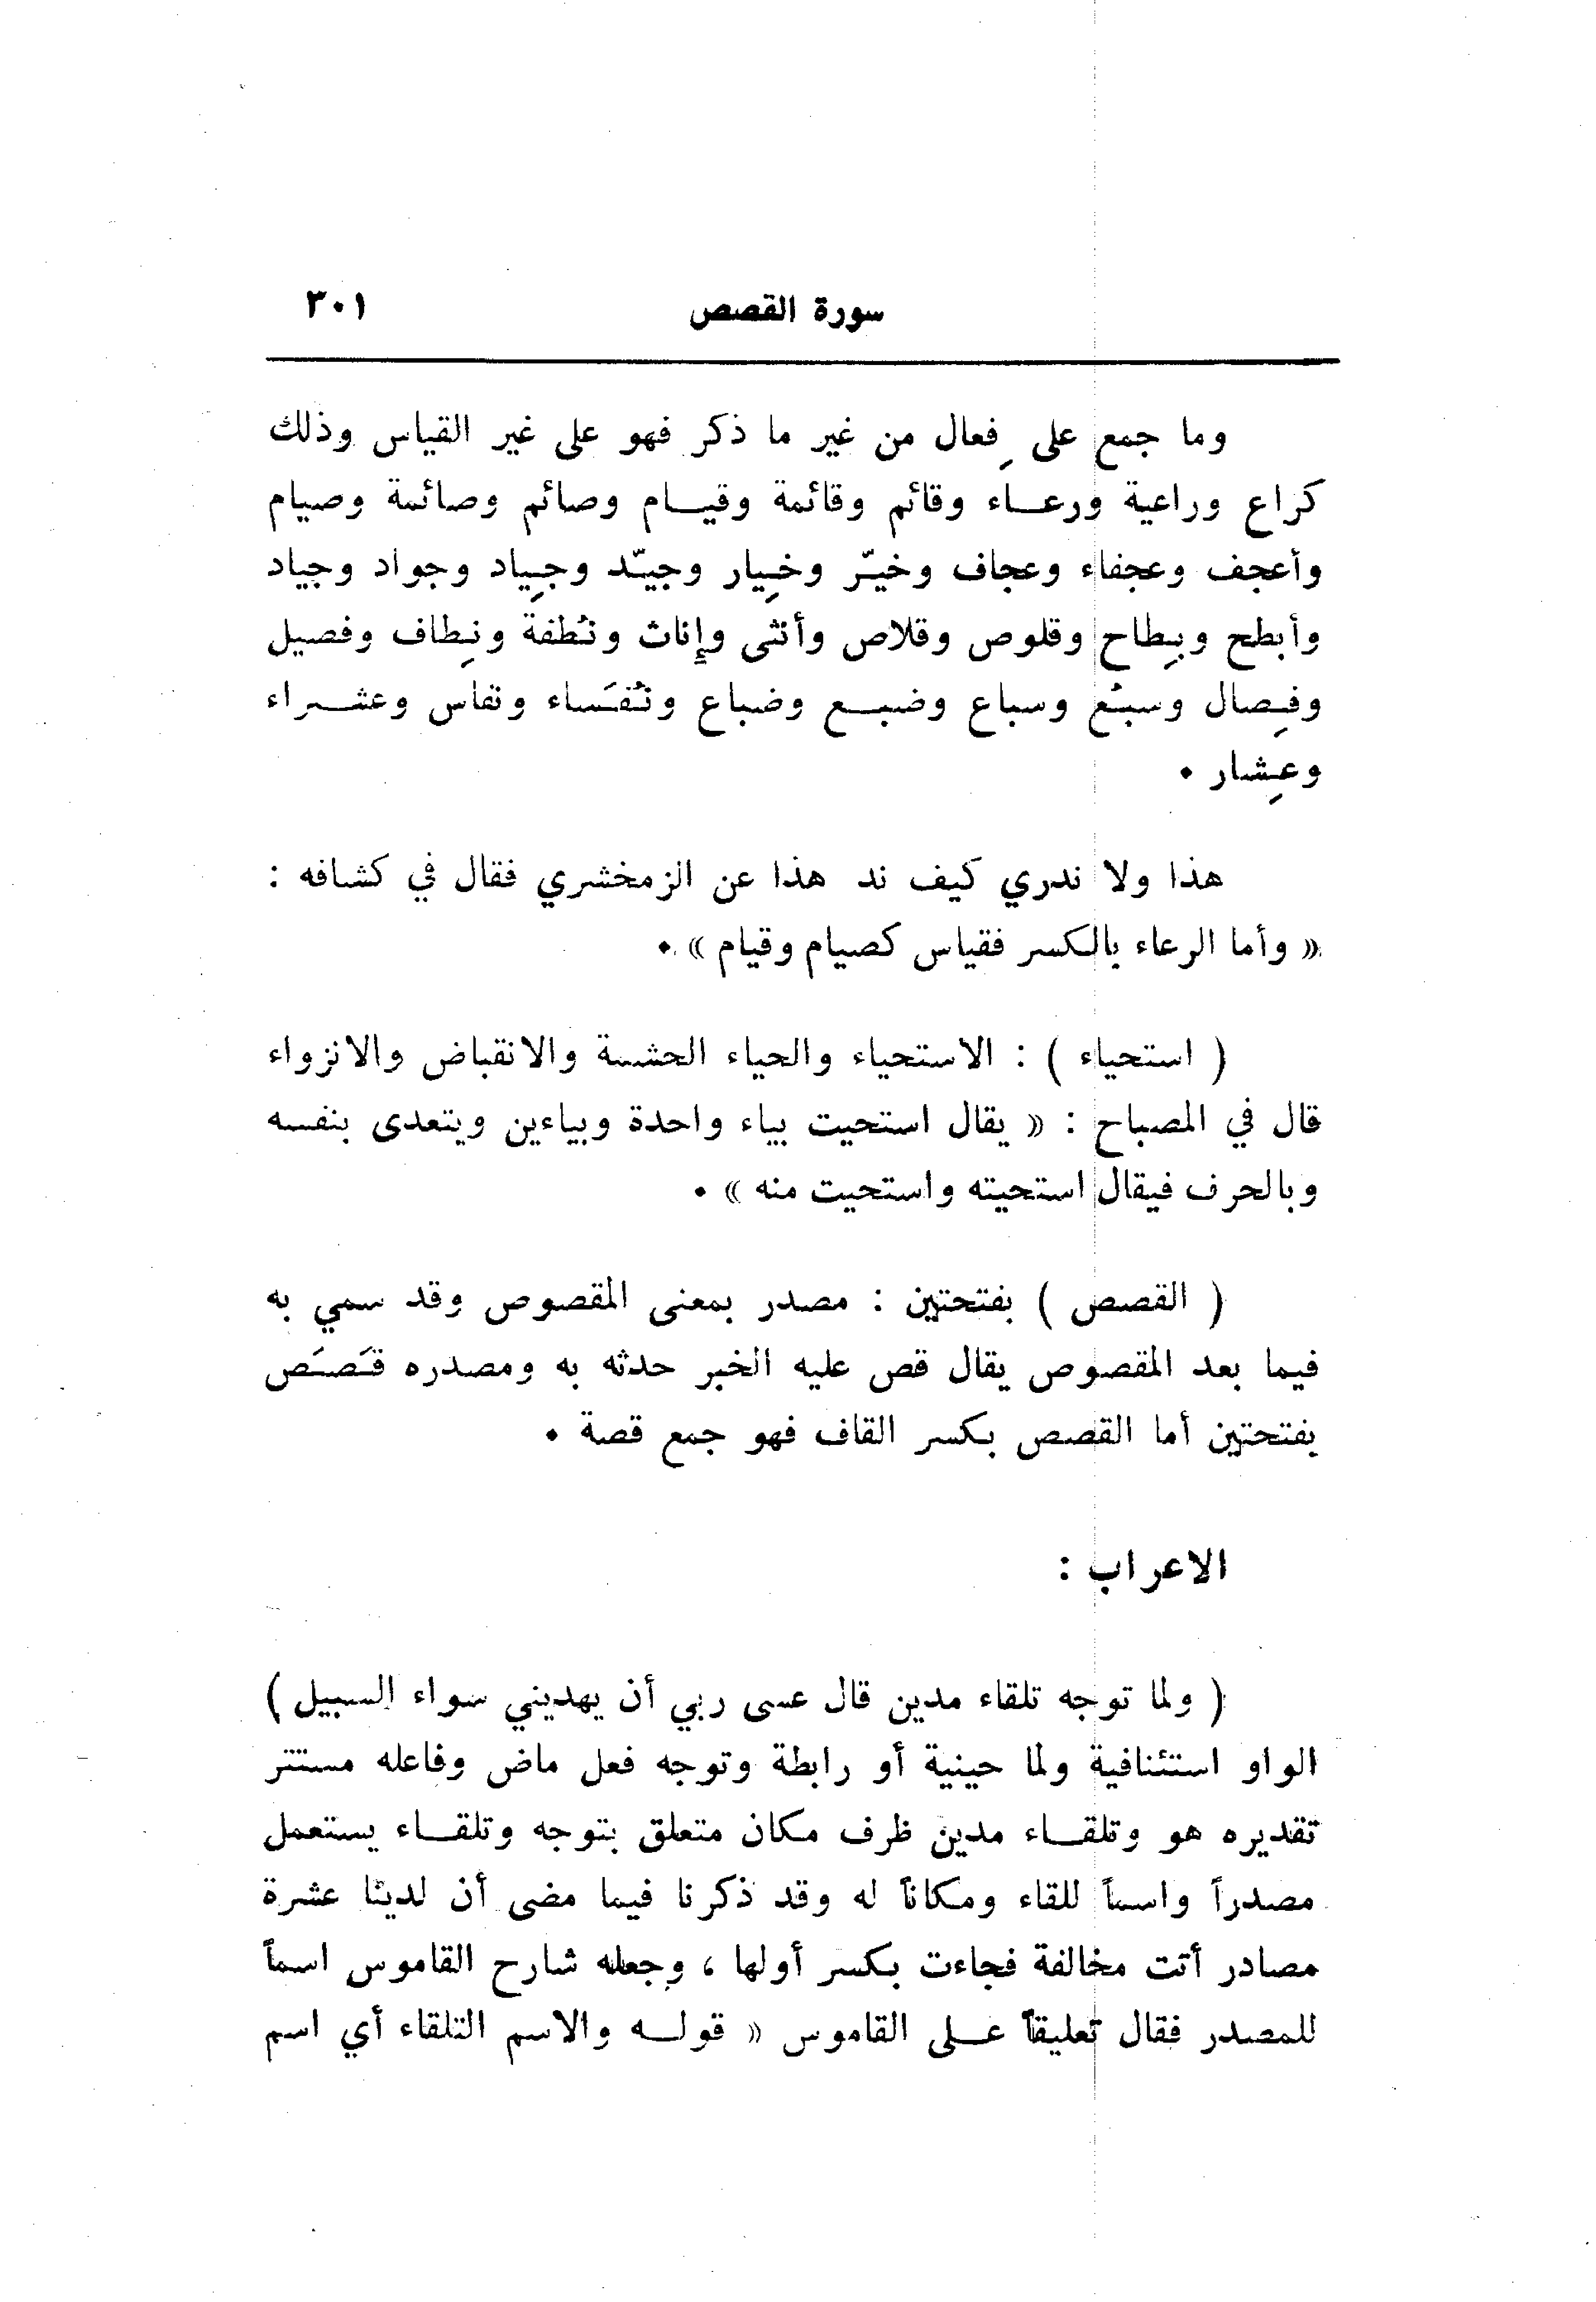 سورة القصص ٣٠١
وما جمع على فِعال من غير ما ذكر فهو على غير القياس وذلك
كراع وراعية ورعاء وقائم وقائمة وقيام وصائم وصائمة وصيام
وأعجف وعجفاء وعجاف وخيّر وخِيار وجيّد وجِياد وجواد وجياد
وأبطح وبِطاح وقلوص وقلاص وأنثى وإناث ونُطفة ونِطاف وفصيل
وفِصال وسبُع وسباع وضبع وضباع ونُفَساء ونفاس وعشراء
وعِشار .
هذا ولا ندري كيف ند هذا عن الزمخشري فقال في كشافه :
« وأما الرعاء بالكسر فقياس كصيام وقيام » .
( استحياء ) : الاستحياء والحياء الحشمة والانقباض والانزواء
قال في المصباح : « يقال استحيت بياء واحدة وبياءين ويتعدى بنفسه
وبالحرف فيقال استحيته واستحيت منه » .
( القصص ) بفتحتين : مصدر بمعنى المقصوص وقد سمي به
فيما بعد المقصوص يقال قص عليه الخبر حدثه به ومصدره قَصَص
بفتحتين أما القصص بكسر القاف فهو جمع قصة .
الاعراب :
( ولما توجه تلقاء مدين قال عسى ربي أن يهديني سواء السبيل )
الواو استئنافية ولما حينية أو رابطة وتوجه فعل ماض وفاعله مستتر
تقديره هو وتلقاء مدين ظرف مكان متعلق بتوجه وتلقاء يستعمل
مصدراً واسماً للقاء ومكاناً له وقد ذكرنا فيما مضى أن لدينا عشرة
مصادر أتت مخالفة فجاءت بكسر أولها ، وجعله شارح القاموس اسماً
للمصدر فقال تعليقاً على القاموس « قوله والاسم التلقاء أي اسم